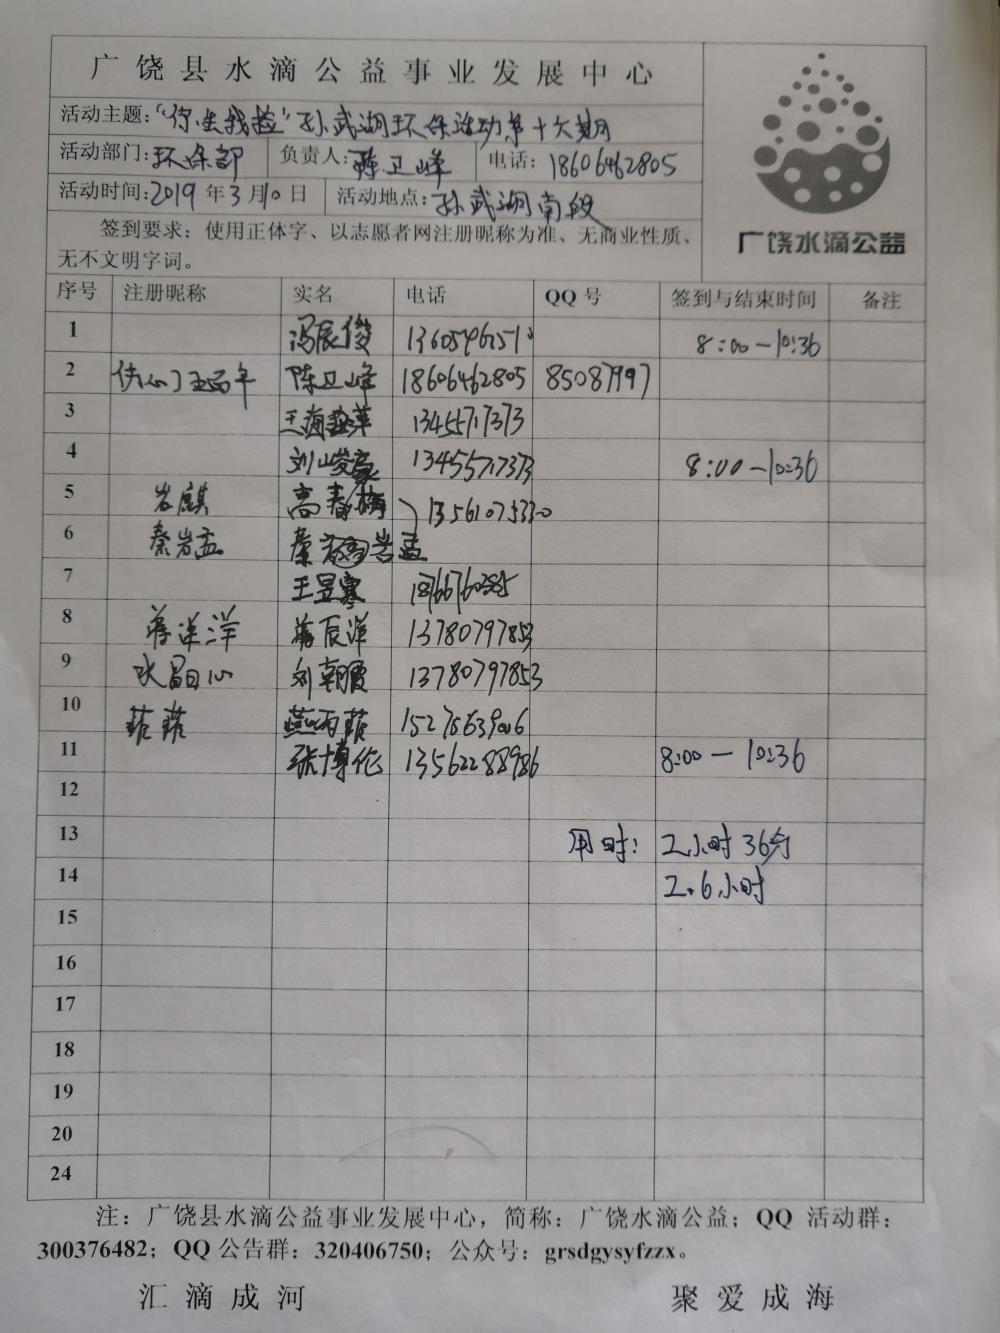 广饶县水滴公益事业发展中心
活动主题："你坐我捡"孙武湖环保活动第十六期
活动部门：环保部 负责人：陈卫峰 电话：18606462805
活动时间：2019年3月10日 活动地点：孙武湖南段
签到要求：使用正体字、以志愿者网注册昵称为准、无商业性质、
无不文明字词。
广饶水滴公益
序号 注册昵称 实名 电话 QQ号 签到与结束时间 备注
1 冯辰俊 8:00-10:36
2 陈卫峰 18606462805 85087997
3 王海燕 13455717373
4 刘峻豪 13455717373 8:00-10:36
5 岩麒 高春梅 13561075330
6 秦岩孟 秦岩孟
7 王昱骞
8 蒋洋洋 蒋辰洋 13780797853
9 水晶日心 刘朝霞 13780797853
10 菲菲 燕丙菲 15275639006
11 张博伦 13562288986 8:00-10:36
12
13 用时：2小时36分
14 2.6小时
15
16
17
18
19
20
24
注：广饶县水滴公益事业发展中心，简称：广饶水滴公益；QQ 活动群：
300376482；QQ公告群：320406750；公众号：grsdgysyfzzx。
汇滴成河 聚爱成海